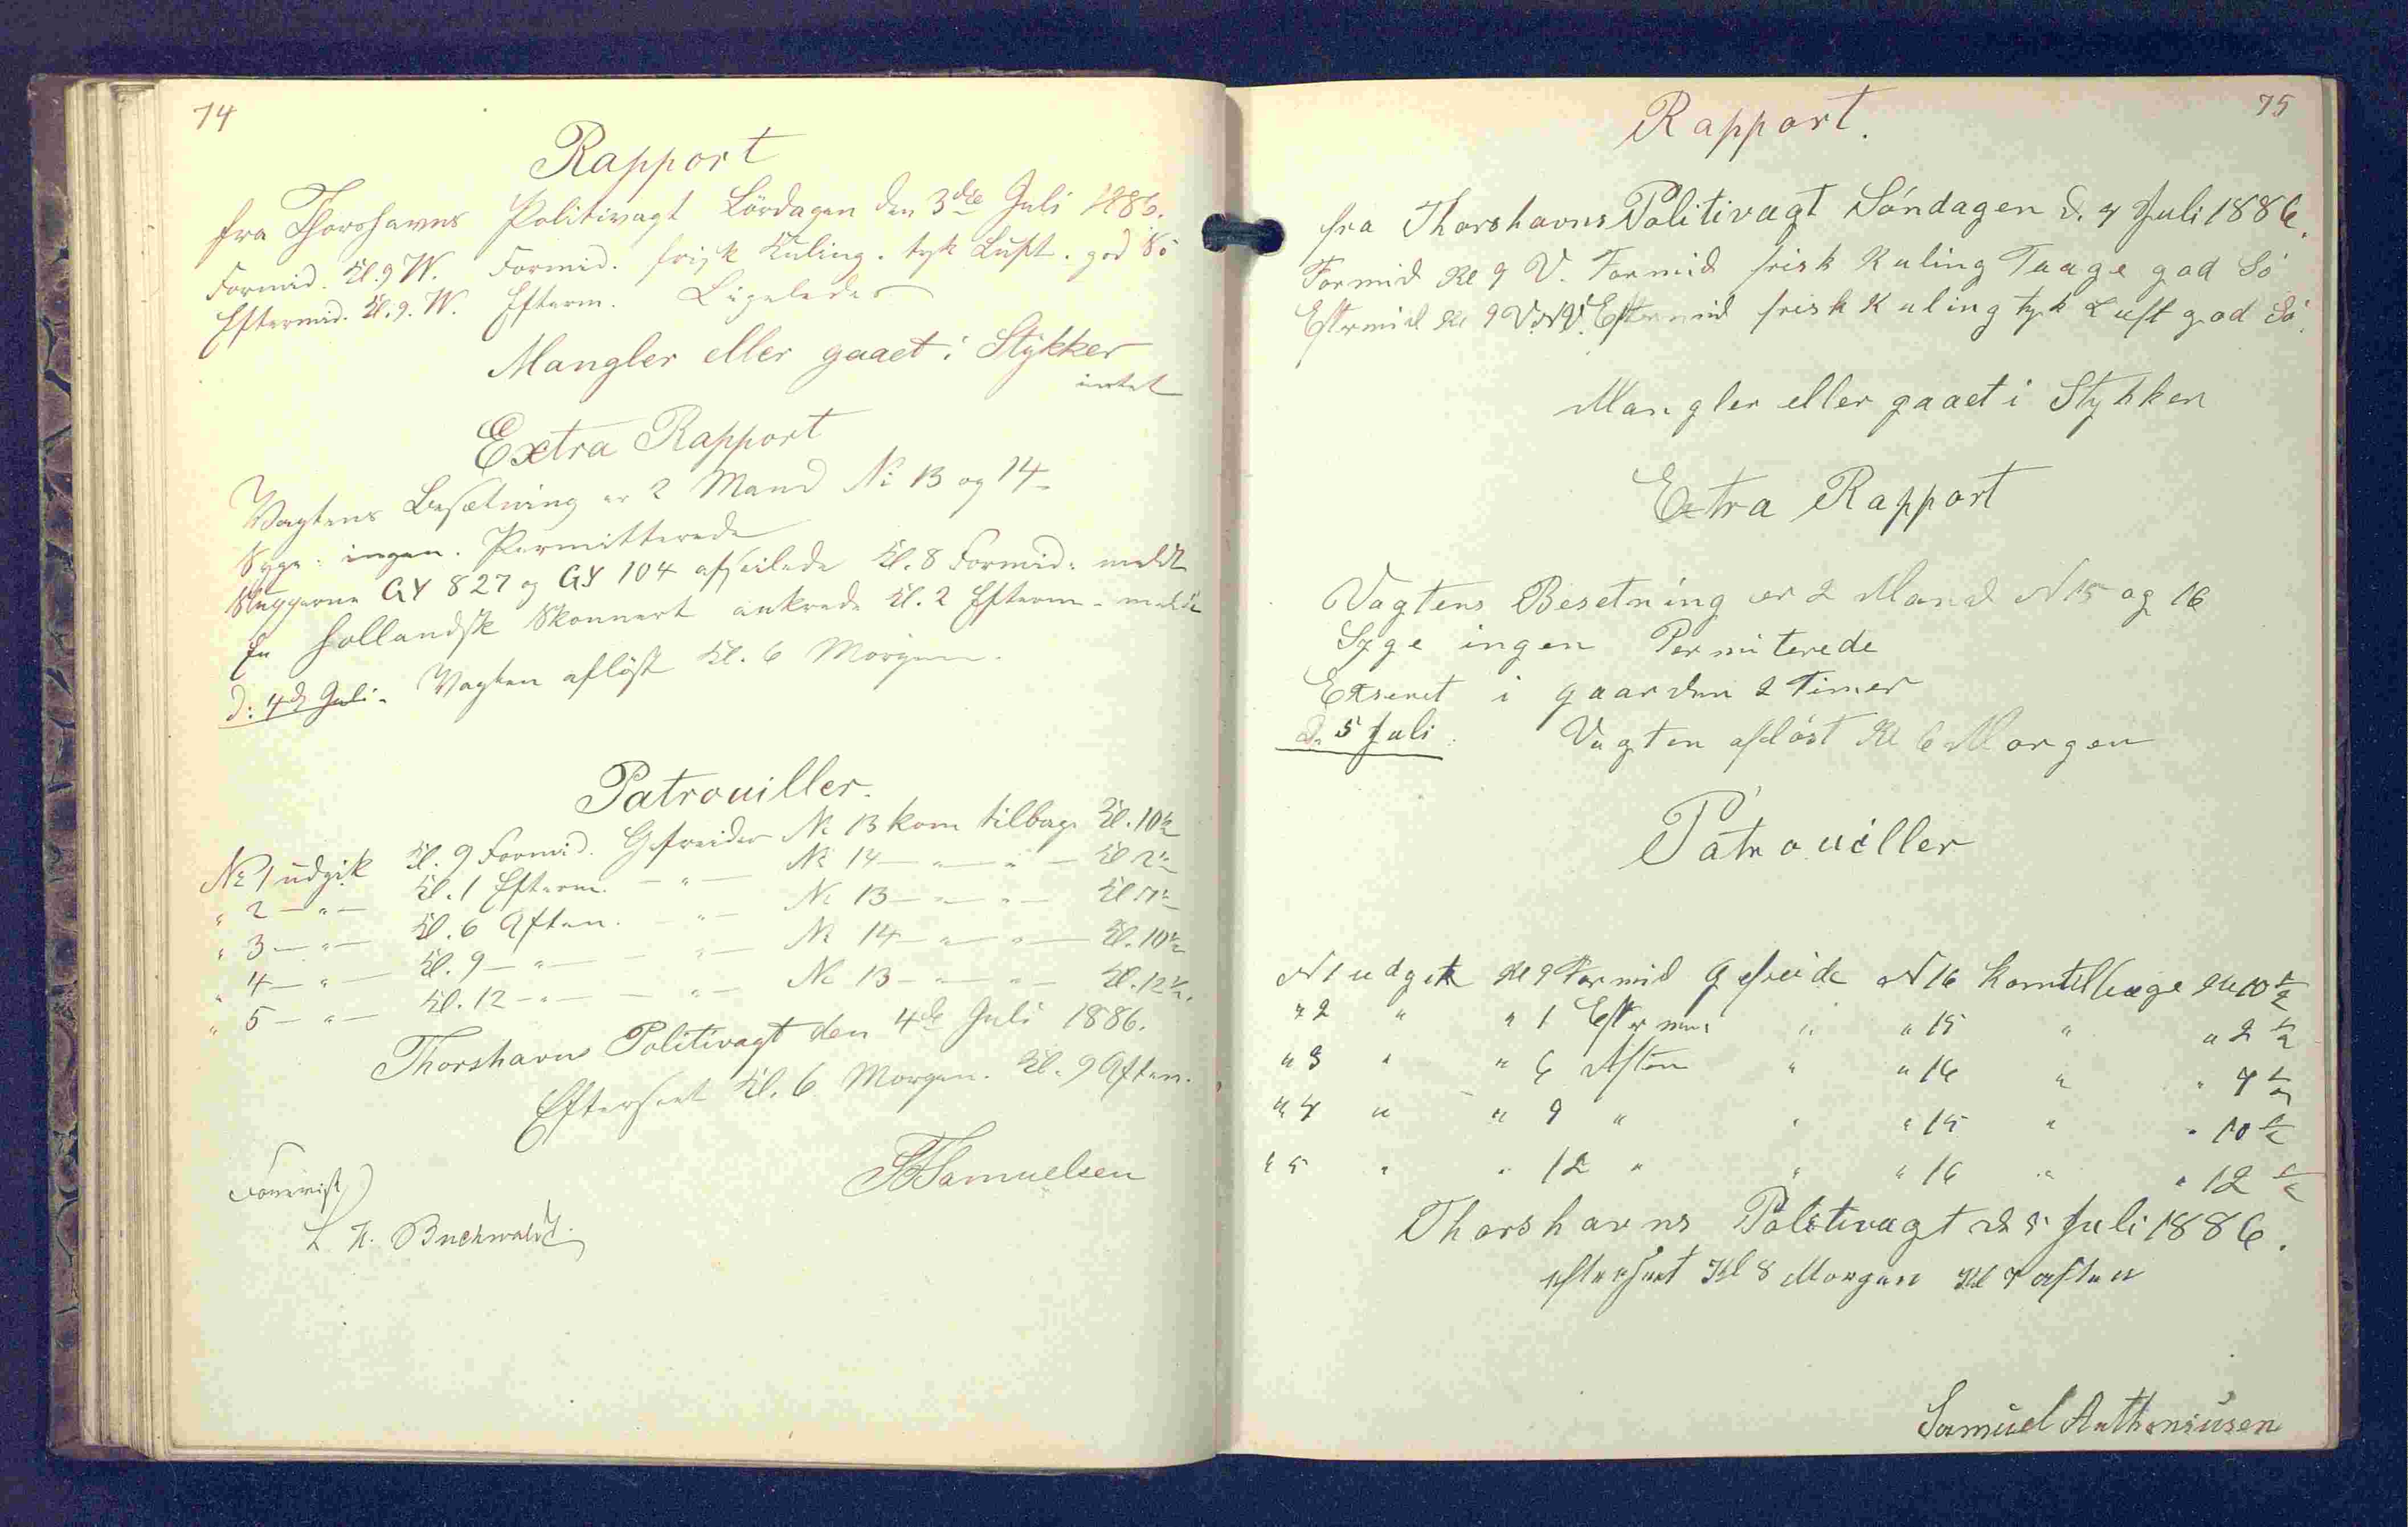 74
Rapport
fra Thorshavns Politivagt Lördagen den 3die Juli 1886.
Formid. Kl. 9 W. Formid. frisk Kuling. tyk Luft. god Sö
Eftermid. Kl. 9. W. Efterm. Ligeledes
Mangler eller gaaet i Stykker
intet
Extra Rapport
Vagtens Besætning er 2 Mand No 13 og 14
Syge: ingen. Permitterede
Slupperne GY 827 og GY 104 afseilede Kl. 8 Formid. meldt
En hollandsk Skonnert ankrede Kl. 2 Efterm. meldt
D: 4de Juli. Vagten aflöst Kl. 6 Morgen.
Patrouiller.
No 1 udgik Kl. 9 Formid. Gefreider No 13 kom tilbage Kl. 10½
" 2 — " — Kl. 1 Efterm. — " — No 14 — " — " — Kl 2½
" 3 — " — Kl. 6 Aften. — " — No 13 — " — " — Kl 7½
" 4 — " — Kl. 9 — " — — " — No 14 — " — " — Kl. 10½
" 5 — " — Kl. 12 — " — — " — No 13 — " — " — Kl. 12½.
Thorshavns Politivagt den 4de Juli 1886.
Efterseet Kl. 6 Morgen. Kl. 9 Aften.
Samuelsen
Forevist
H. Buchwaldt
75
Rapport.
fra Thorshavns Politivagt Söndagen d. 4 Juli 1886.
Formid Kl 9 V. Formid frisk Kuling Taage god Sö
Eftrmid Kl 9 V.N.V. Eftermid frisk Kuling tyk Luft god Sö.
Mangler eller gaaet i Stykker
Extra Rapport
Vagtens Besetning er 2 Mand N 15 og 16
Syge ingen Permiterede
Exseret i gaarden 2 Timer
D. 5 Juli. Vagten aflöst Kl 6 Morgen
Patrouiller
N 1 udgik Kl 9 Formid Gefreide N 16 kom tilbage Kl 10 ½
" 2 " " 1 Efterm " " 15 " " 2 ½
" 3 " " 6 Aften " " 16 " " 7 ½
" 4 " " 9 " " " 15 " " 10 ½
" 5 " " 12 " " " 16 " " 12 ½
Thorshavns Politivagt d 5 Juli 1886.
efterseet Kl 8 Morgen Kl 7 aften
Samuel Anthoniusen